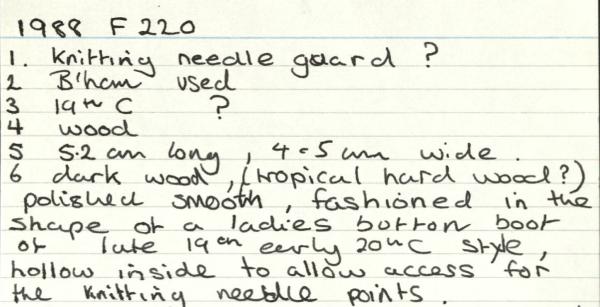 1988 F 220
1. Knitting needle guard ?
2 B'ham used
3 19th C ?
4 wood
5 5.2 cm long, 4.5 cm wide.
6 dark wood, (tropical hard wood?)
polished smooth, fashioned in the
shape of a ladies button boot
of late 19th early 20th C style,
hollow inside to allow access for
the knitting needle points.